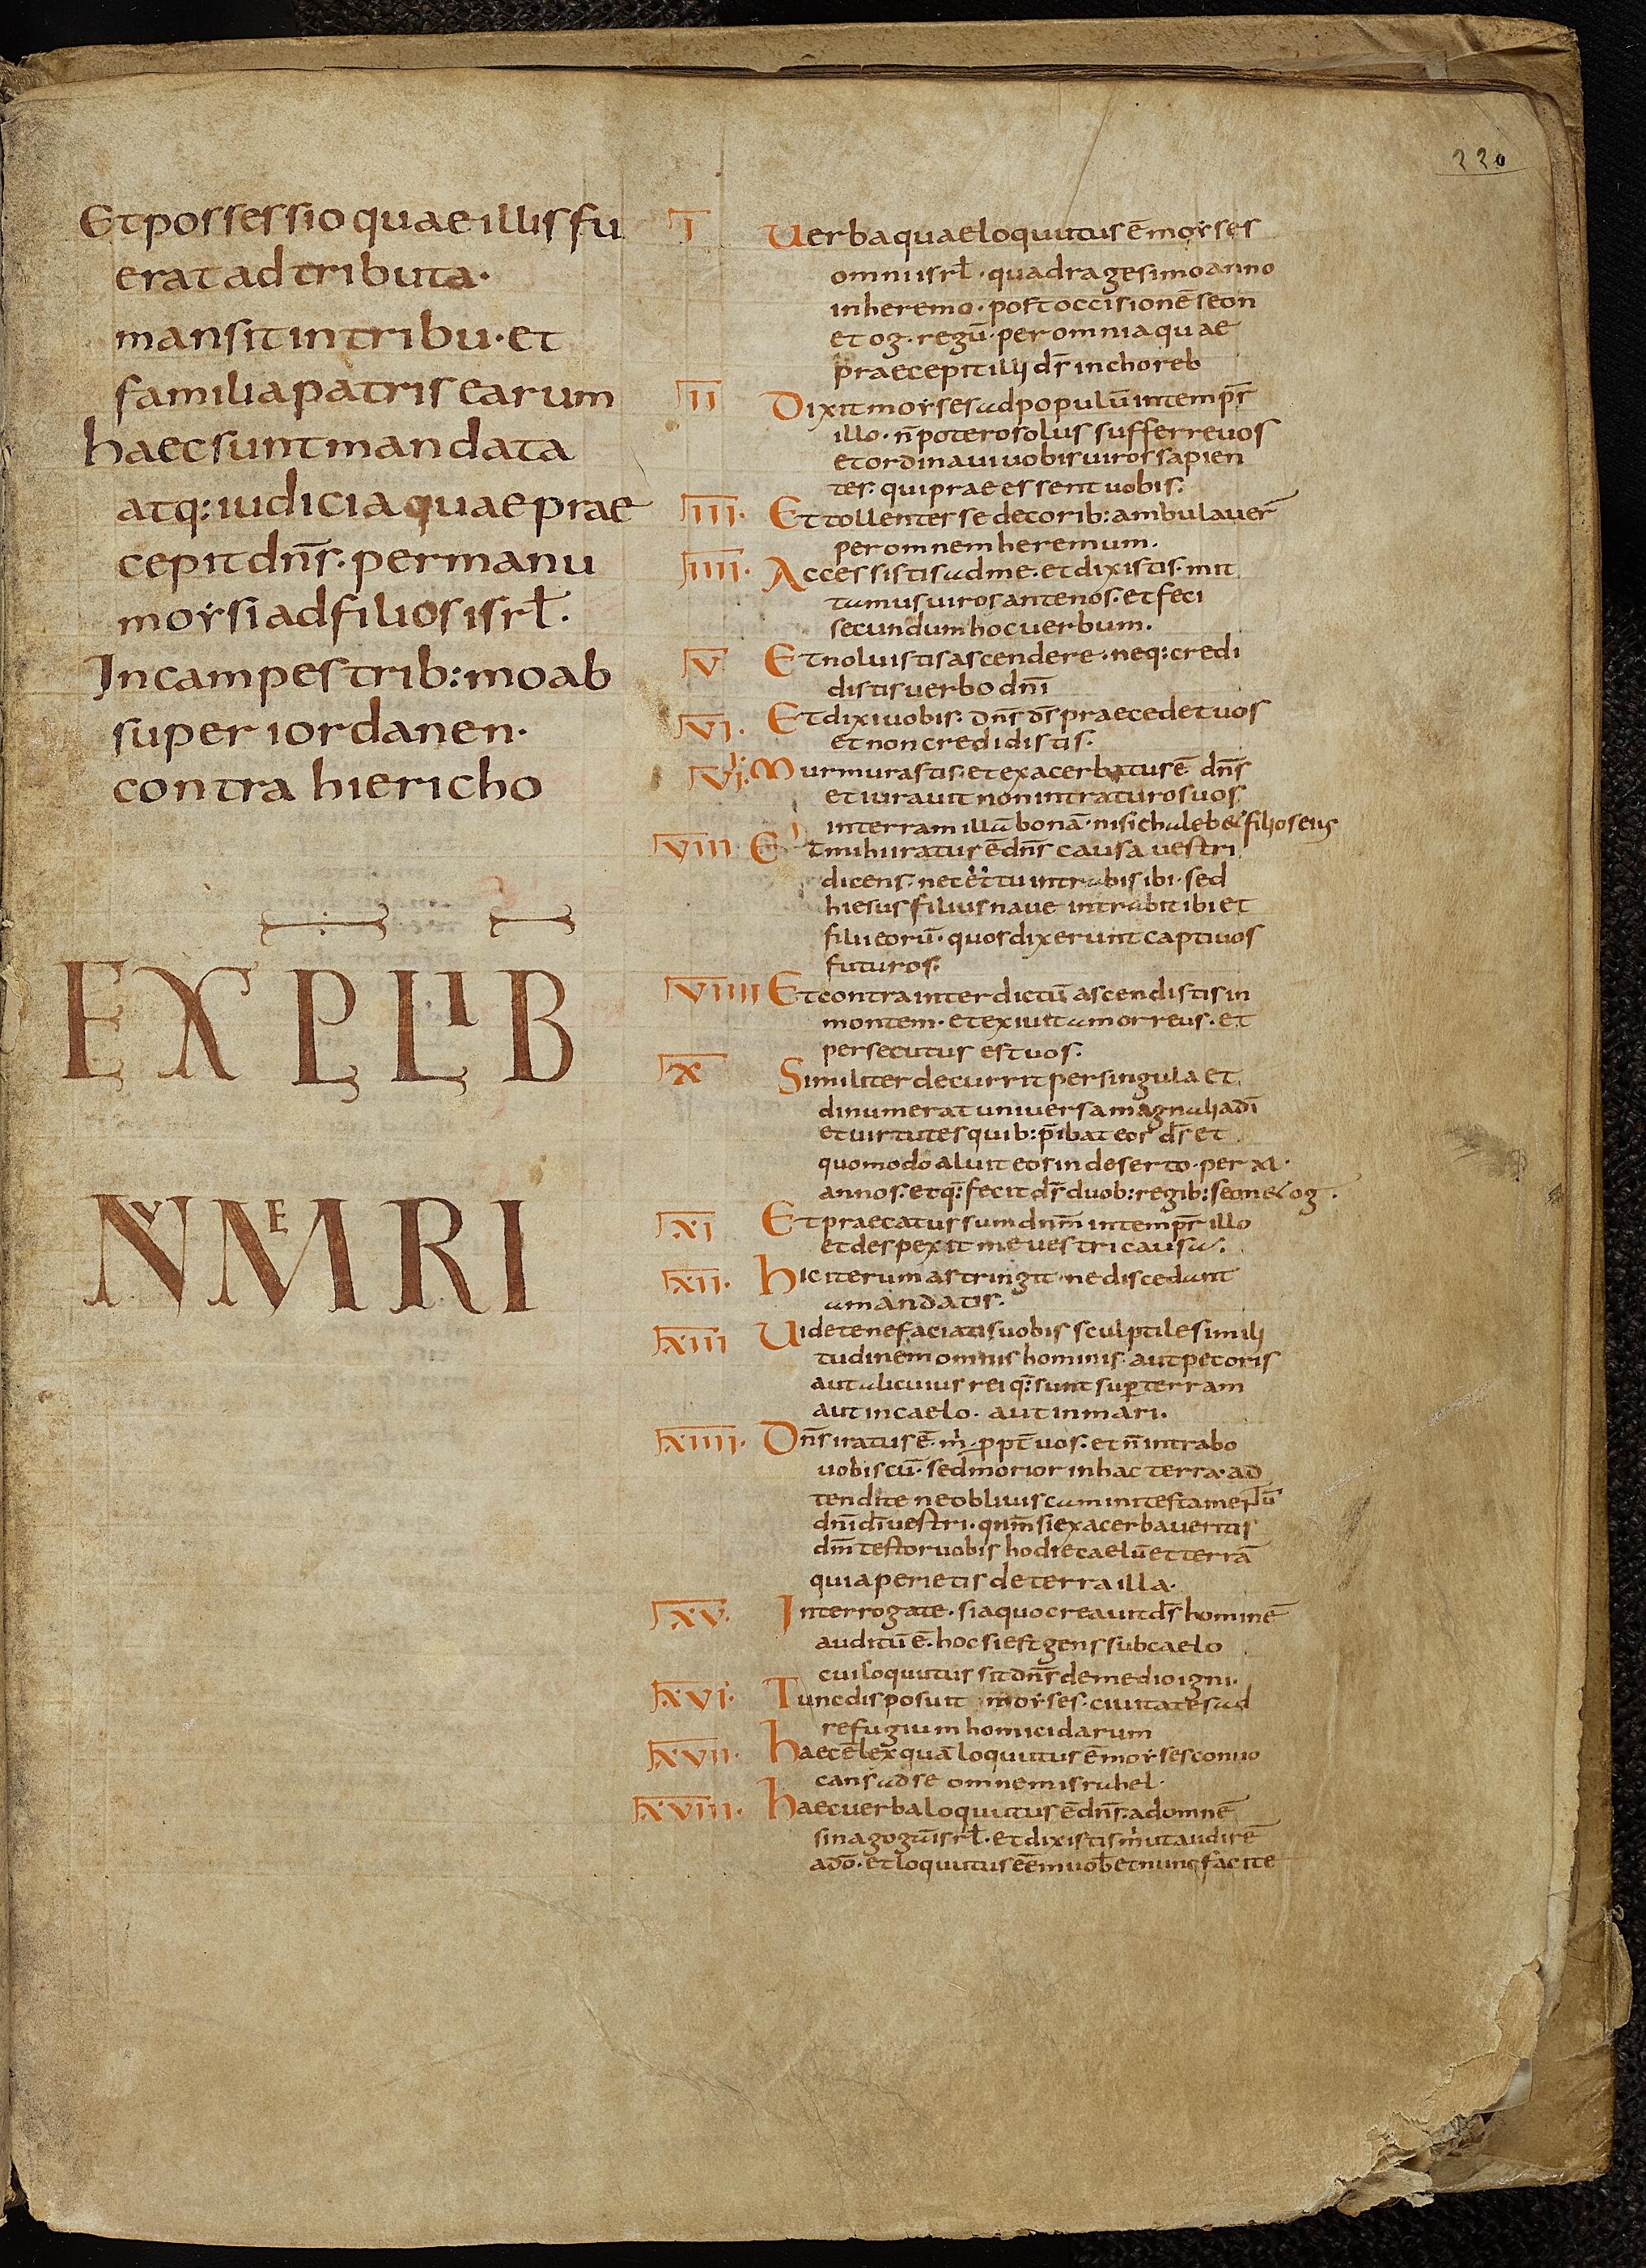 220
Et possessio quae illis fu
erat ad tributa·
mansit in tribu· et
familia patris earum
haec sunt mandata
atq: iudicia quae prae
cepit dn̄s· per manu
moysi ad filios isrl̄·
In campestrib: moab
super iordanen·
contra hiericho
EXPL LIB
NVMERI
I Uerba quae loquutus ē moyses
omni isrl̄· quadragesimo anno
in heremo· post occisionē seon
et og· regū· per omnia quae
praecepit illi ds̄ in choreb
II Dixit moyses ad populū in temp̄r
illo· n̄ potero solus sufferre uos
et ordinaui uobis uiros sapien
tes· qui praeessent uobis·
III· Et tollentes se de corib: ambulauer̄
per omnem heremum·
IIII· Accessistis ad me· et dixistis· mit
tamus uiros ante nos· et feci
secundum hoc uerbum·
V Et noluistis ascendere· neq: credi
distis uerbo dn̄i
VI· Et dixi uobis· dn̄s ds̄ praecedet uos
et non credidistis·
VII· Murmurastis· et exacerbatus ē dn̄s
et iurauit non intraturos uos
in terram illā bonā· nisi chaleb & filios eius
VIII Et mihi iratus ē dn̄s causa uestri
dicens· nec tu intrabis ibi· sed
hiesus filius naue intrabit ibi et
filii eorū· quos dixerunt captiuos
futuros·
VIIII Et contra interdictū ascendistis in
montem· et exiuit amorreus· et
persecutus est uos·
X Similiter decurrit per singula et
dinumerat uniuersa magnalia dī
et uirtutes quib: p̄ibat eos ds̄ et
quomodo aluit eos in deserto· per xl·
annos· et q: fecit ds̄ duob: regib: seon & og·
XI Et praecatus sum dnm̄ in temp̄r illo
et despexit me uestri causa·
XII· Hic iterum astringit· ne discedant
a mandatis·
XIII Uidete ne faciatis uobis sculptile simili
tudinem omnis hominis· aut pecoris
aut alicuius rei q: sunt sup̄ terram
aut in caelo· aut in mari·
XIIII· Dn̄s iratus ē· m̄· ppt̄ uos· et n̄ intrabo
uobiscū· sed morior in hac terra· ad
tendite ne obliuiscamini testamentū
dn̄i dī uestri· qnm̄ si exacerbaueritis
dm̄ testor uobis hodie caelū et terrā
quia perietis de terra illa·
XV· Interrogate· si a quo creauit ds̄ hominē
auditū ē· hoc si est gens sub caelo
cui loquutus sit dn̄s de medio igni·
XVI· Tunc disposuit moyses· ciuitates ad
refugium homicidarum
XVII· Haec ē lex quā loquutus ē moyses conuo
cans ad se omnem israhel·
XVIII· Haec uerba loquutus ē dn̄s· ad omnē
sinagogā isrl̄· et dixistis m̄ ut audirē
a dō· et loquutus eēm uob̄ et nunc facite